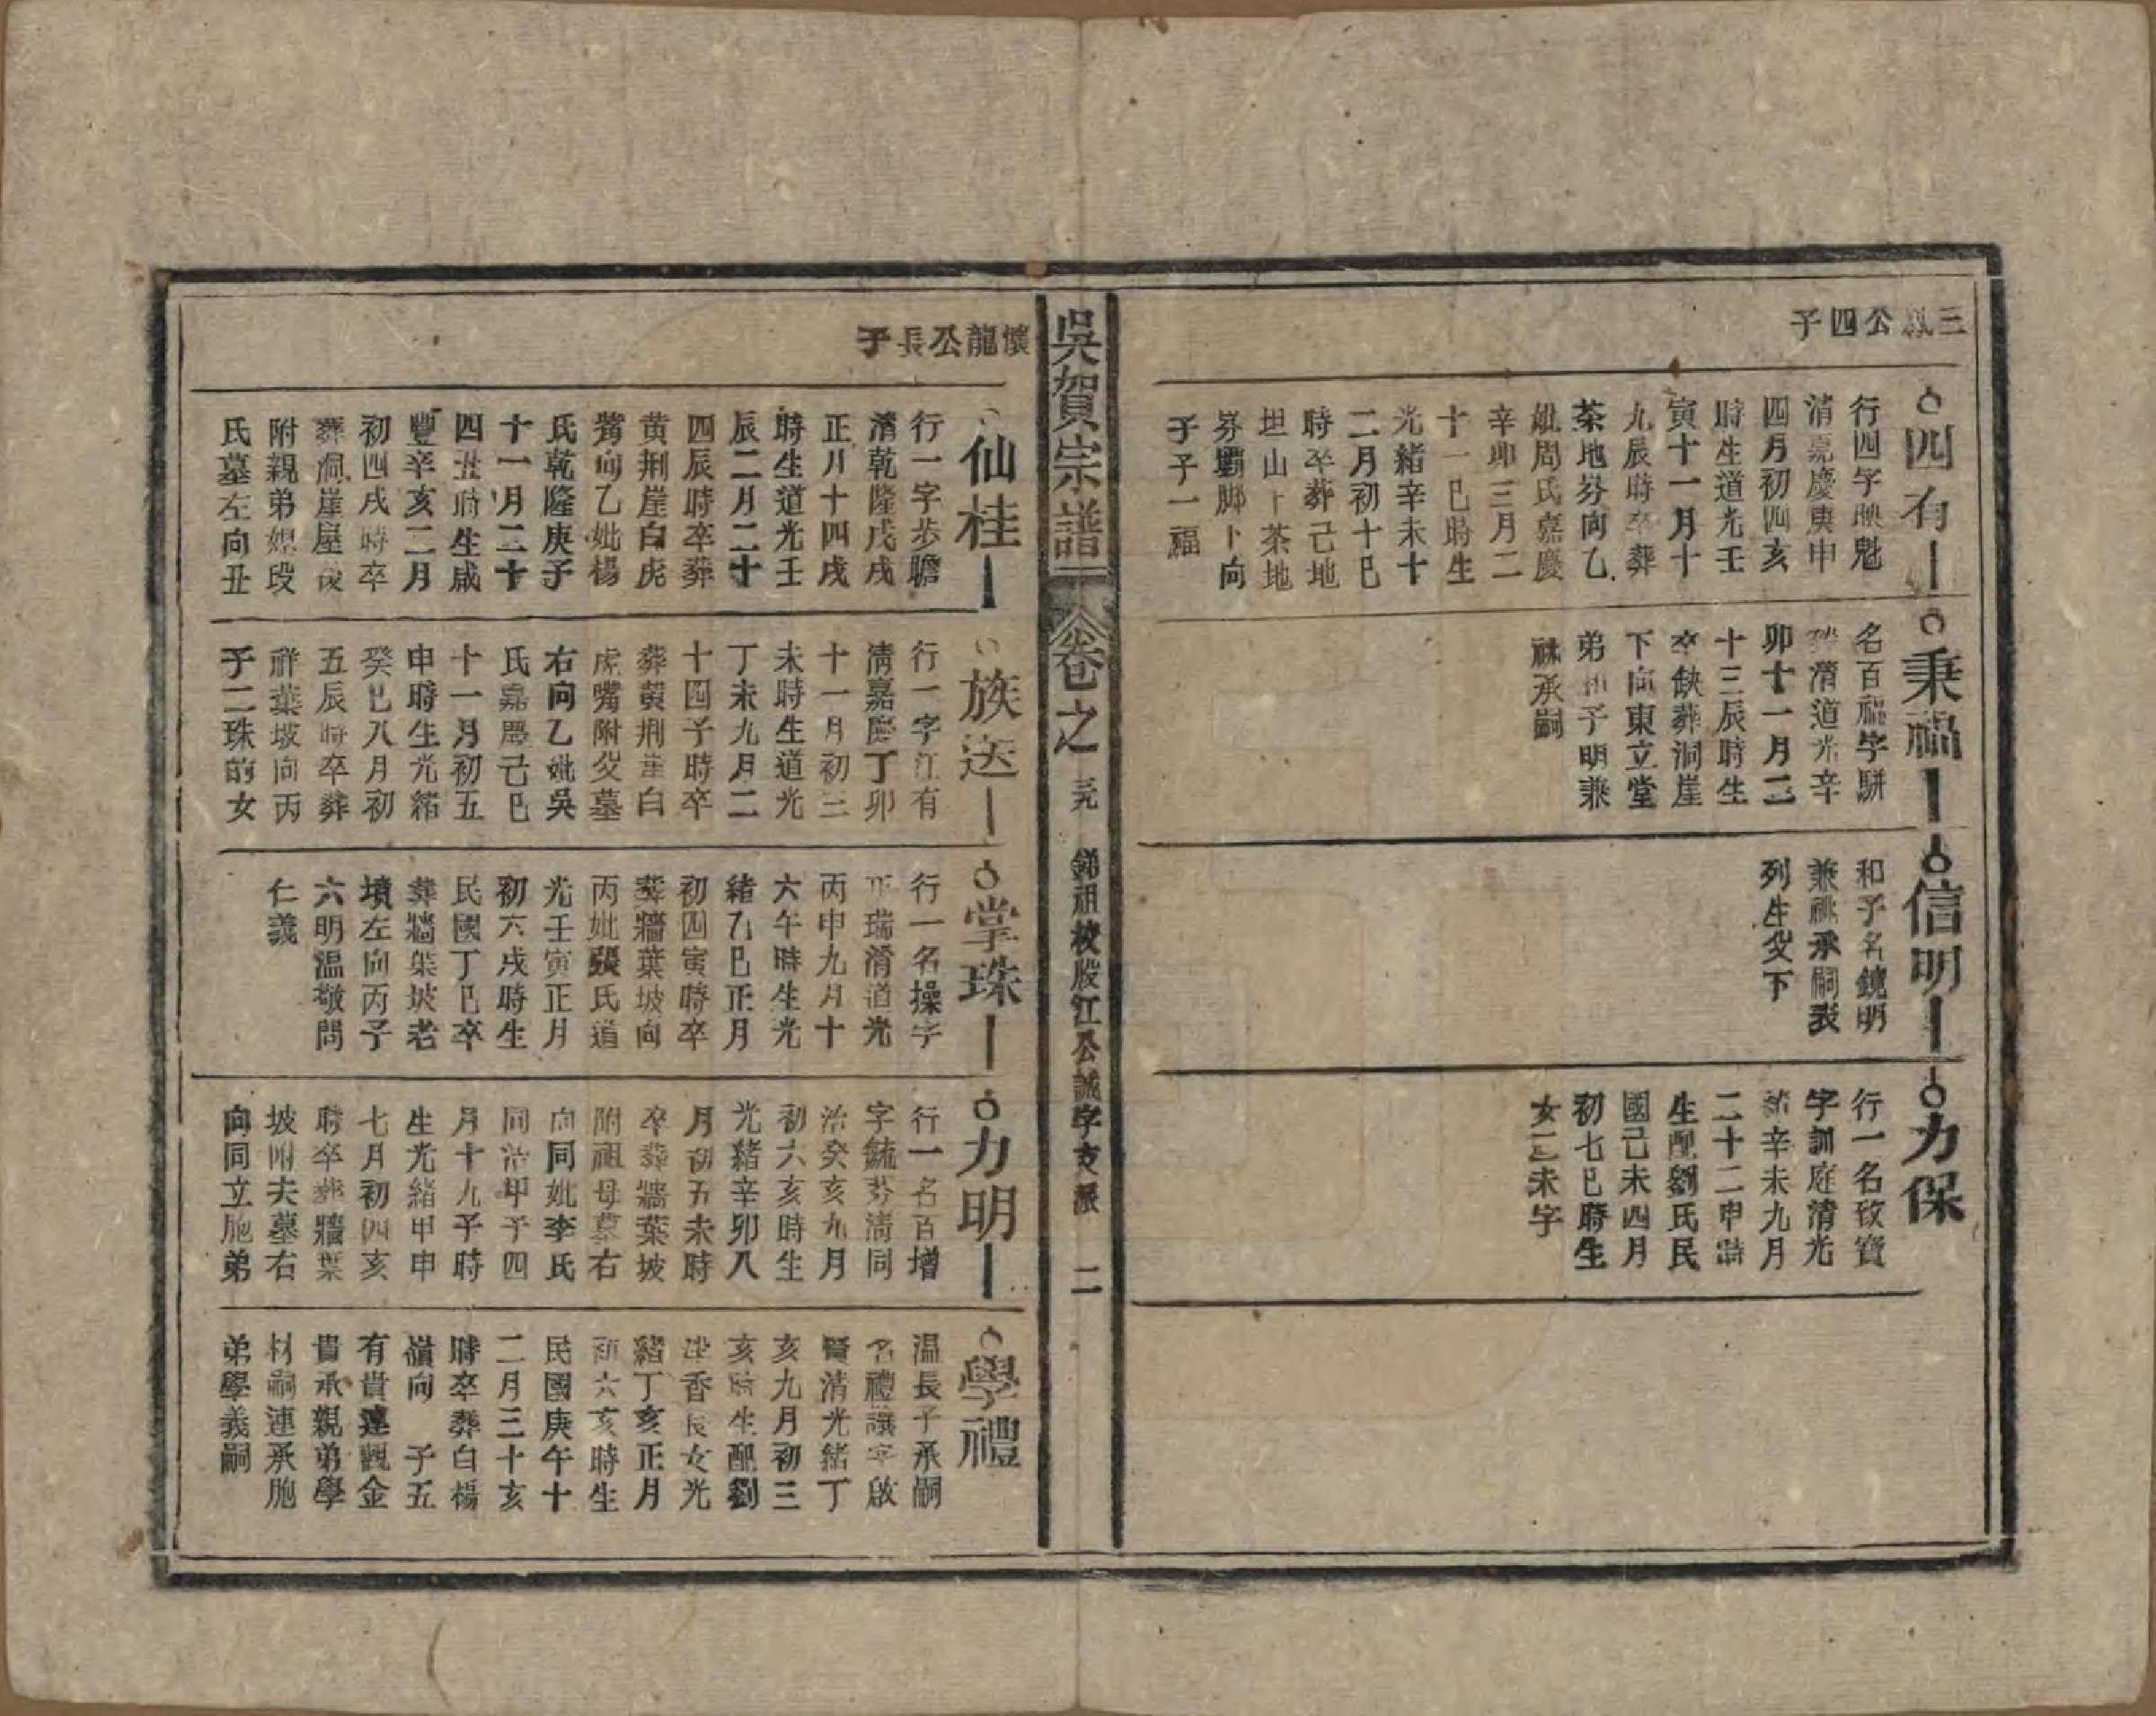 三鳳公四子
四有
行四字映魁
清嘉慶庚申
四月初四亥
時生道光壬
寅十一月十
九辰時卒葬
茶地芬向乙
妣周氏嘉慶
辛卯三月二
十一巳時生
光緒辛未十
二月初十巳
時卒葬己地
坦山下茶地
芬壩脚卜向
子子一福
秉福
名百福字駢
清道光辛
卯十一月二
十三辰時生
卒缺葬洞崖
下向東立堂
弟和子明兼
祧承嗣
信明
和子名鏡明
兼祧承嗣表
列生父下
力保
行一名致寶
字訓庭清光
緒辛未九月
二十二申時
生配劉氏民
國己未四月
初七巳時生
女二未字
吳賀宗譜
卷之
錦祖校股江公誠字支派
二
懷龍公長子
仙桂
行一字步瞻
清乾隆戊戌
正月十四戌
時生道光壬
辰二月二十
四辰時卒葬
黄荆崖白虎
嘴向乙妣楊
氏乾隆庚子
十一月二十
四丑時生咸
豐辛亥二月
初四戌時卒
葬洞崖屋後
附親弟媳段
氏墓左向丑
族送
行一字江有
清嘉慶丁卯
十一月初三
未時生道光
丁未九月二
十四子時卒
葬黄荆崖白
虎嘴附父墓
右向乙妣吳
氏嘉慶己巳
十一月初五
申時生光緒
癸巳八月初
五辰時卒葬
牂葉坡向丙
子二珠的女
掌珠
行一名操字
正瑞清道光
丙申九月十
六午時生光
緒乙巳正月
初四寅時卒
葬牆葉坡向
丙妣張氏道
光壬寅正月
初六戌時生
民國丁巳卒
葬牆葉坡老
墳左向丙子
六明温敬問
仁義
力明
行一名百增
字毓芬清同
治癸亥九月
初六亥時生
光緒辛卯八
月初五未時
卒葬牆葉坡
附祖母墓右
向同妣李氏
同治甲子四
月十九子時
生光緒甲申
七月初四亥
時卒葬牆葉
坡附夫墓右
向同立胞弟
學禮
温長子承嗣
名禮讓字啟
賢清光緒丁
亥九月初三
亥時生配劉
洪香長女光
緒丁亥正月
初六亥時生
民國庚午十
二月三十亥
時卒葬白楊
嶺向　子五
有貴連觀金
貴承親弟學
材嗣連承胞
弟學義嗣